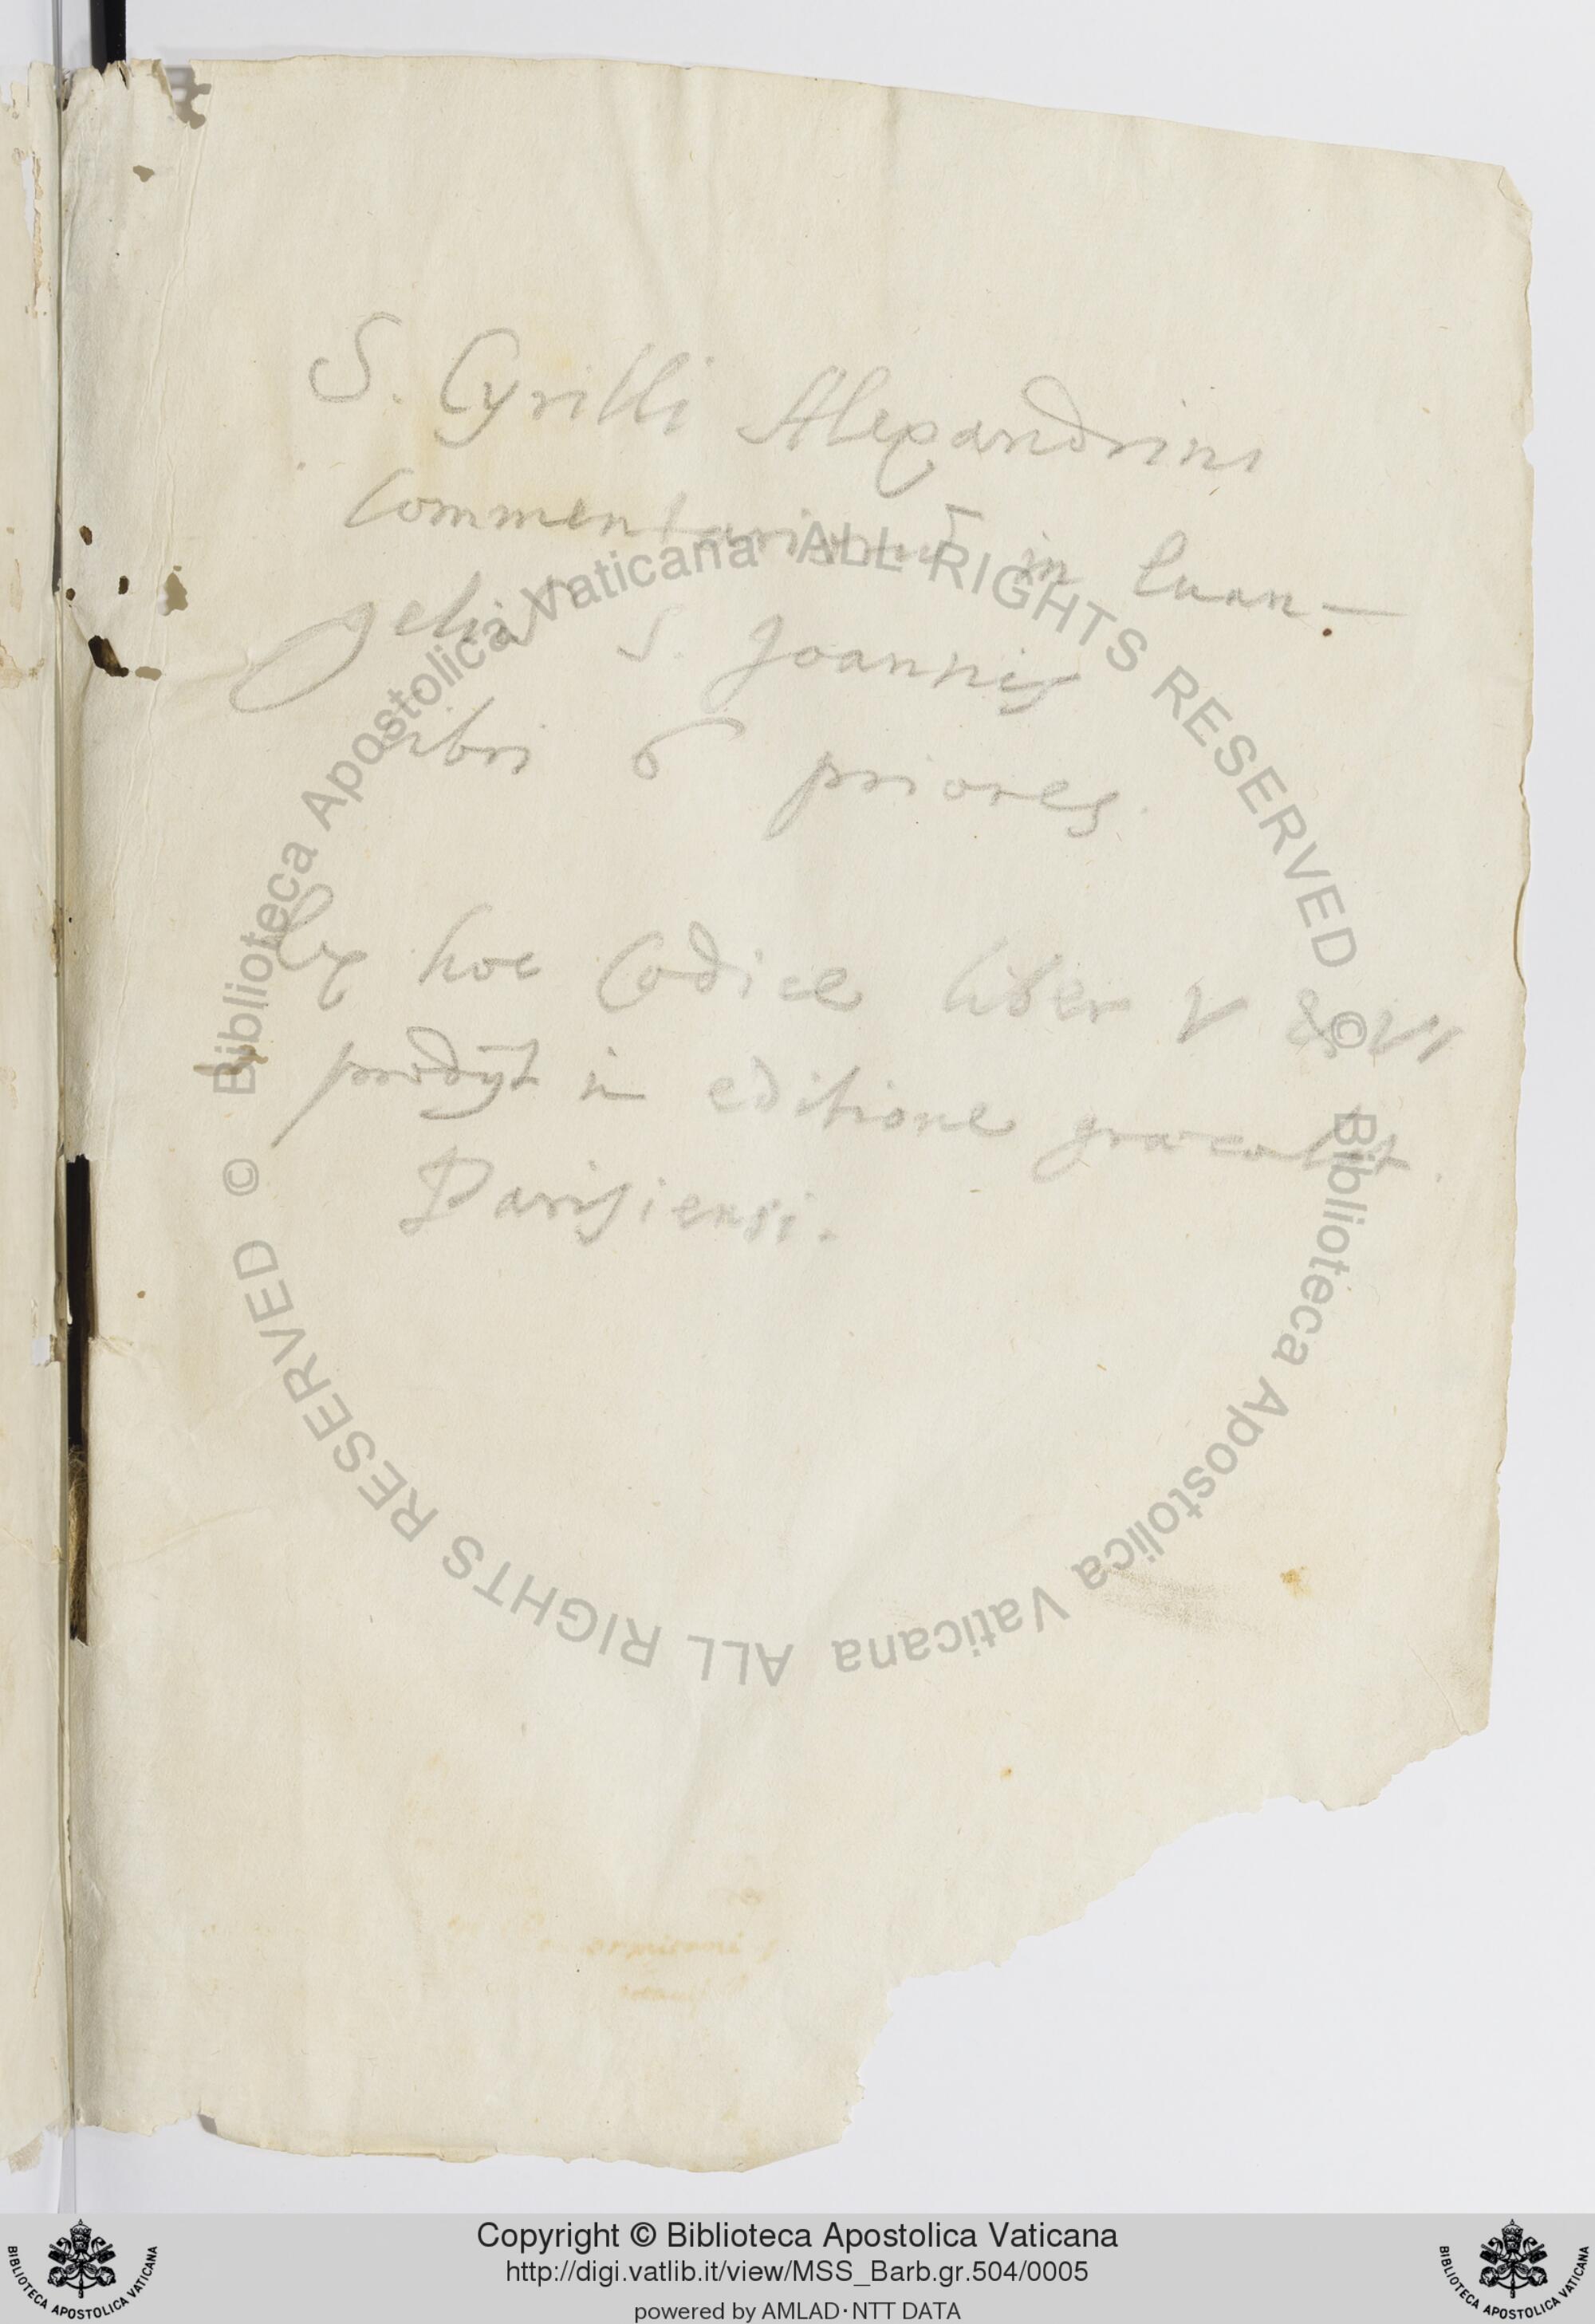 S. Cyrilli Alexandrini
Commentariorū in Euan-
geliū S. Joannis
libri 6 priores.
Ex hoc Codice liber V & VI
prodijt in editione græcolat.
Parisiensi.
© Biblioteca Apostolica Vaticana ALL RIGHTS RESERVED
© Biblioteca Apostolica Vaticana ALL RIGHTS RESERVED
Copyright © Biblioteca Apostolica Vaticana
http://digi.vatlib.it/view/MSS_Barb.gr.504/0005
powered by AMLAD·NTT DATA
BIBLIOTECA APOSTOLICA VATICANA
BIBLIOTECA APOSTOLICA VATICANA